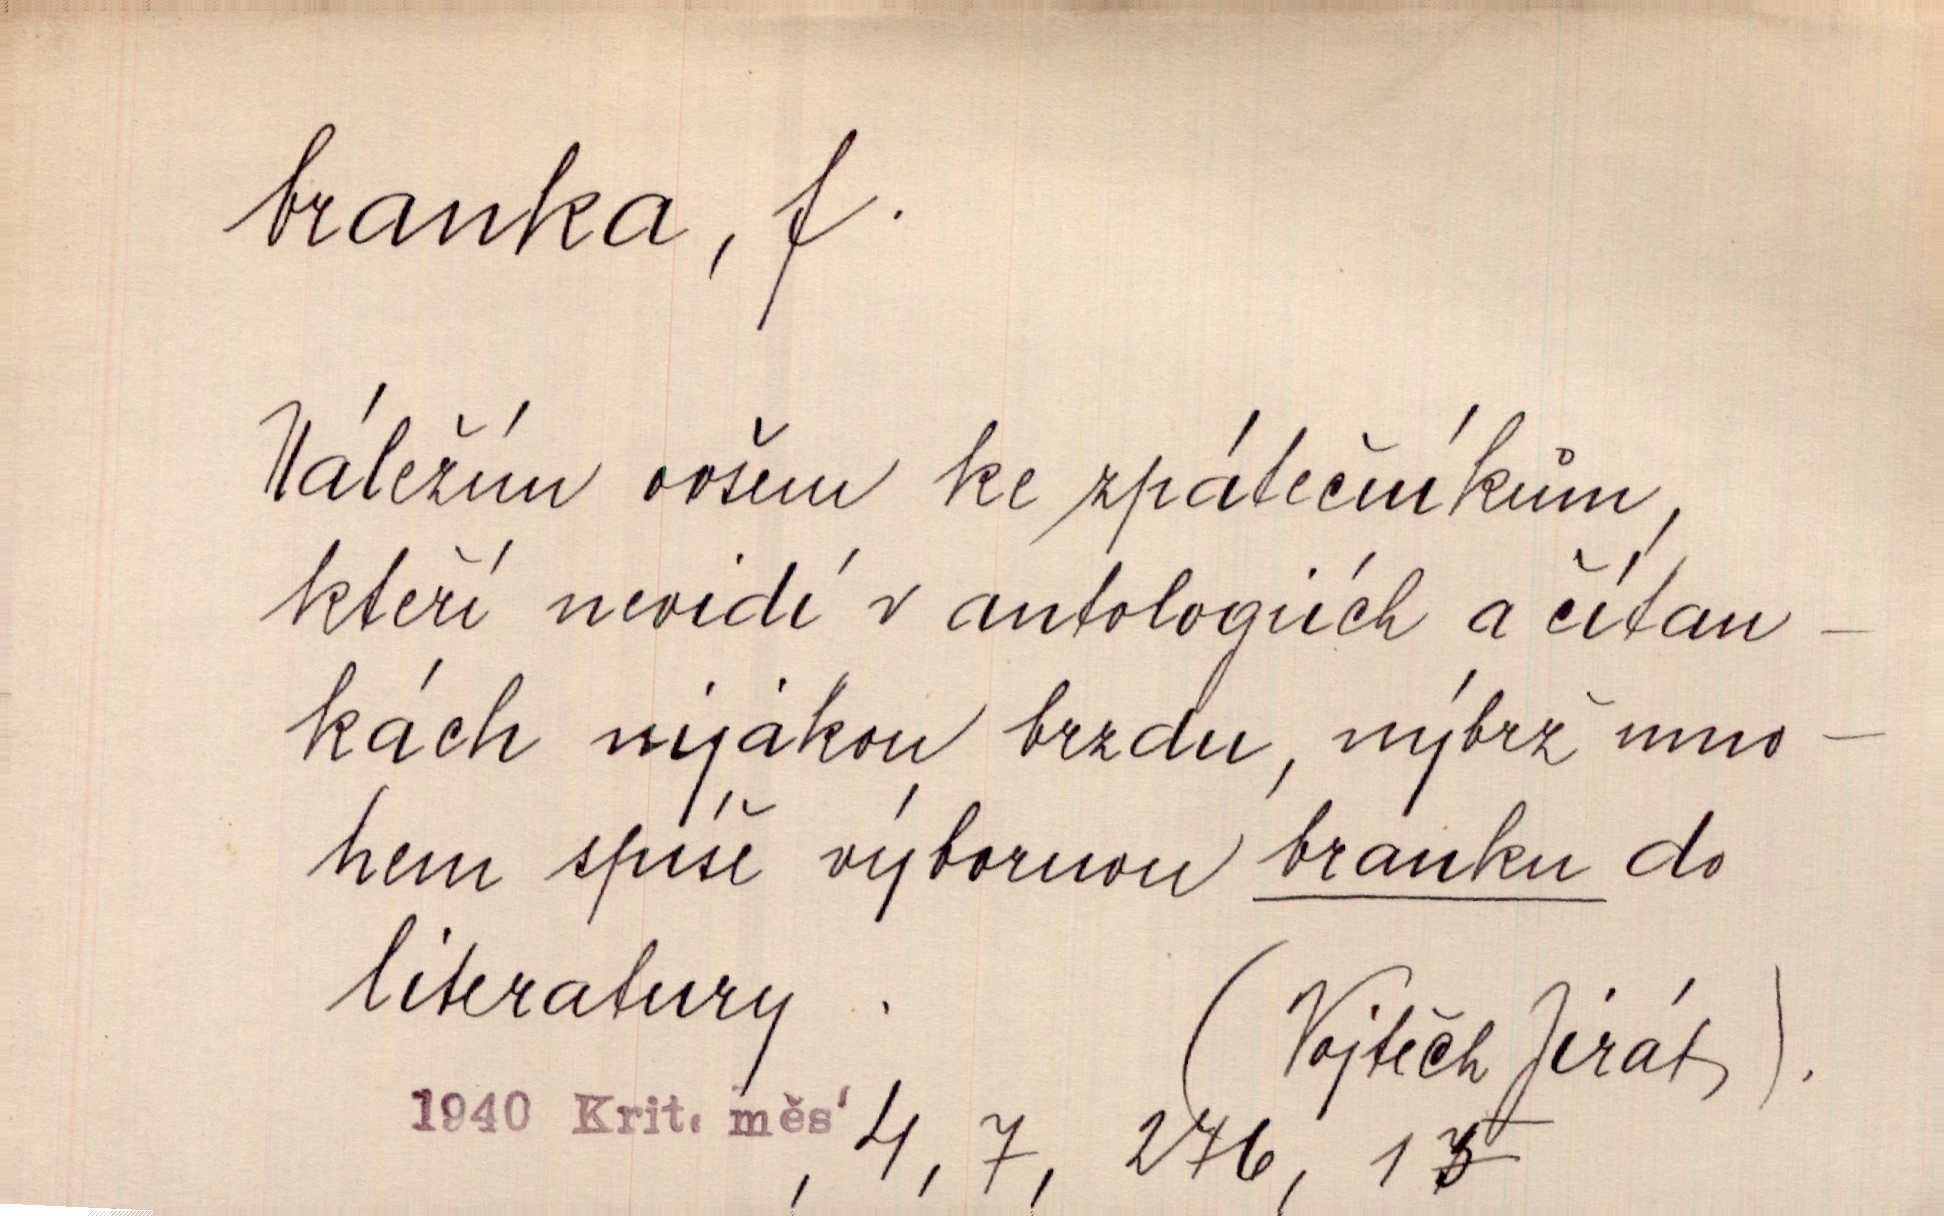 branka, f.
Náležím ovšem ke zpátečníkům,
kteří nevidí v antologiích a čítan-
kách nijakou brzdu, nýbrž mno-
hem spíše výbornou branku do
literatury.
(Vojtěch Jirát).
1940 Krit. měs, 4, 7, 276,